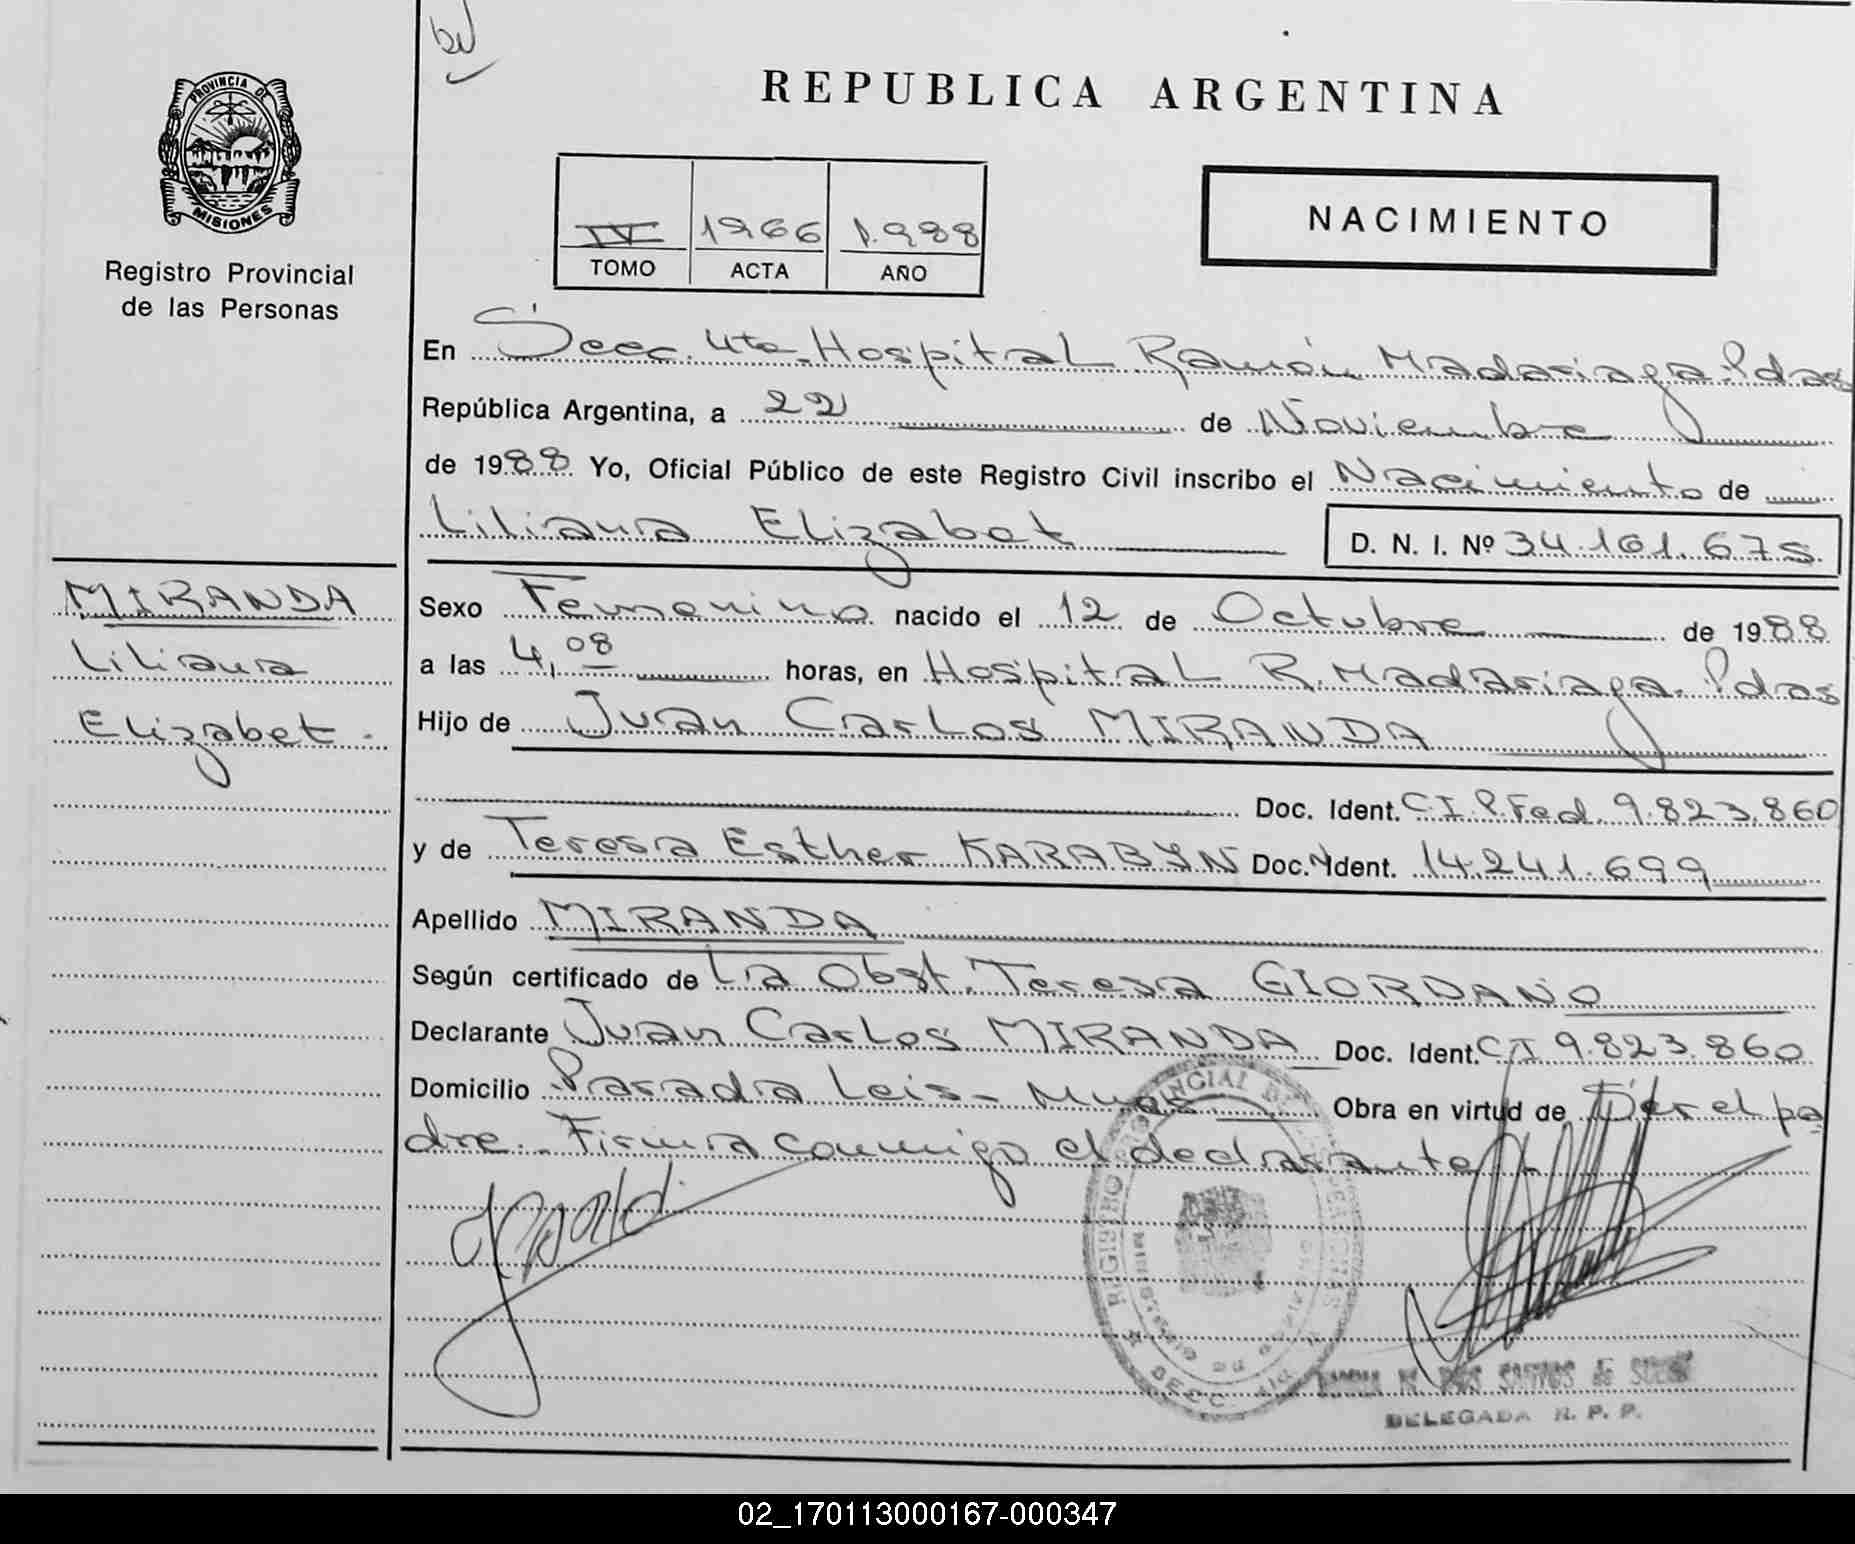 REPUBLICA ARGENTINA
PROVINCIA DE
MISIONES
Registro Provincial
de las Personas
IV 1966 1.988
TOMO ACTA AÑO
NACIMIENTO
En Secc. 4ta. Hospital Ramón Madariaga. Pdas
República Argentina, a 22 de Noviembre
de 1988 Yo, Oficial Público de este Registro Civil inscribo el Nacimiento de
Liliana Elizabet D. N. I. Nº 34.161.675
MIRANDA
Liliana
Elizabet.
Sexo Femenino nacido el 12 de Octubre de 1988
a las 4,08 horas, en Hospital R. Madariaga. Pdas
Hijo de Juan Carlos MIRANDA
Doc. Ident. C.I.P.Fed. 9.823.860
y de Teresa Esther KARABYN Doc. Ident. 14.241.699
Apellido MIRANDA
Según certificado de La Obst. Teresa GIORDANO
Declarante Juan Carlos MIRANDA Doc. Ident. CI 9.823.860
Domicilio Parada Leis - Mnes Obra en virtud de Ser el pa
dre. Firma conmigo el declarante
REGISTRO PROVINCIAL DE PERSONAS
SECC.
DOS SANTOS de
DELEGADA R. P. P.
02_170113000167-000347